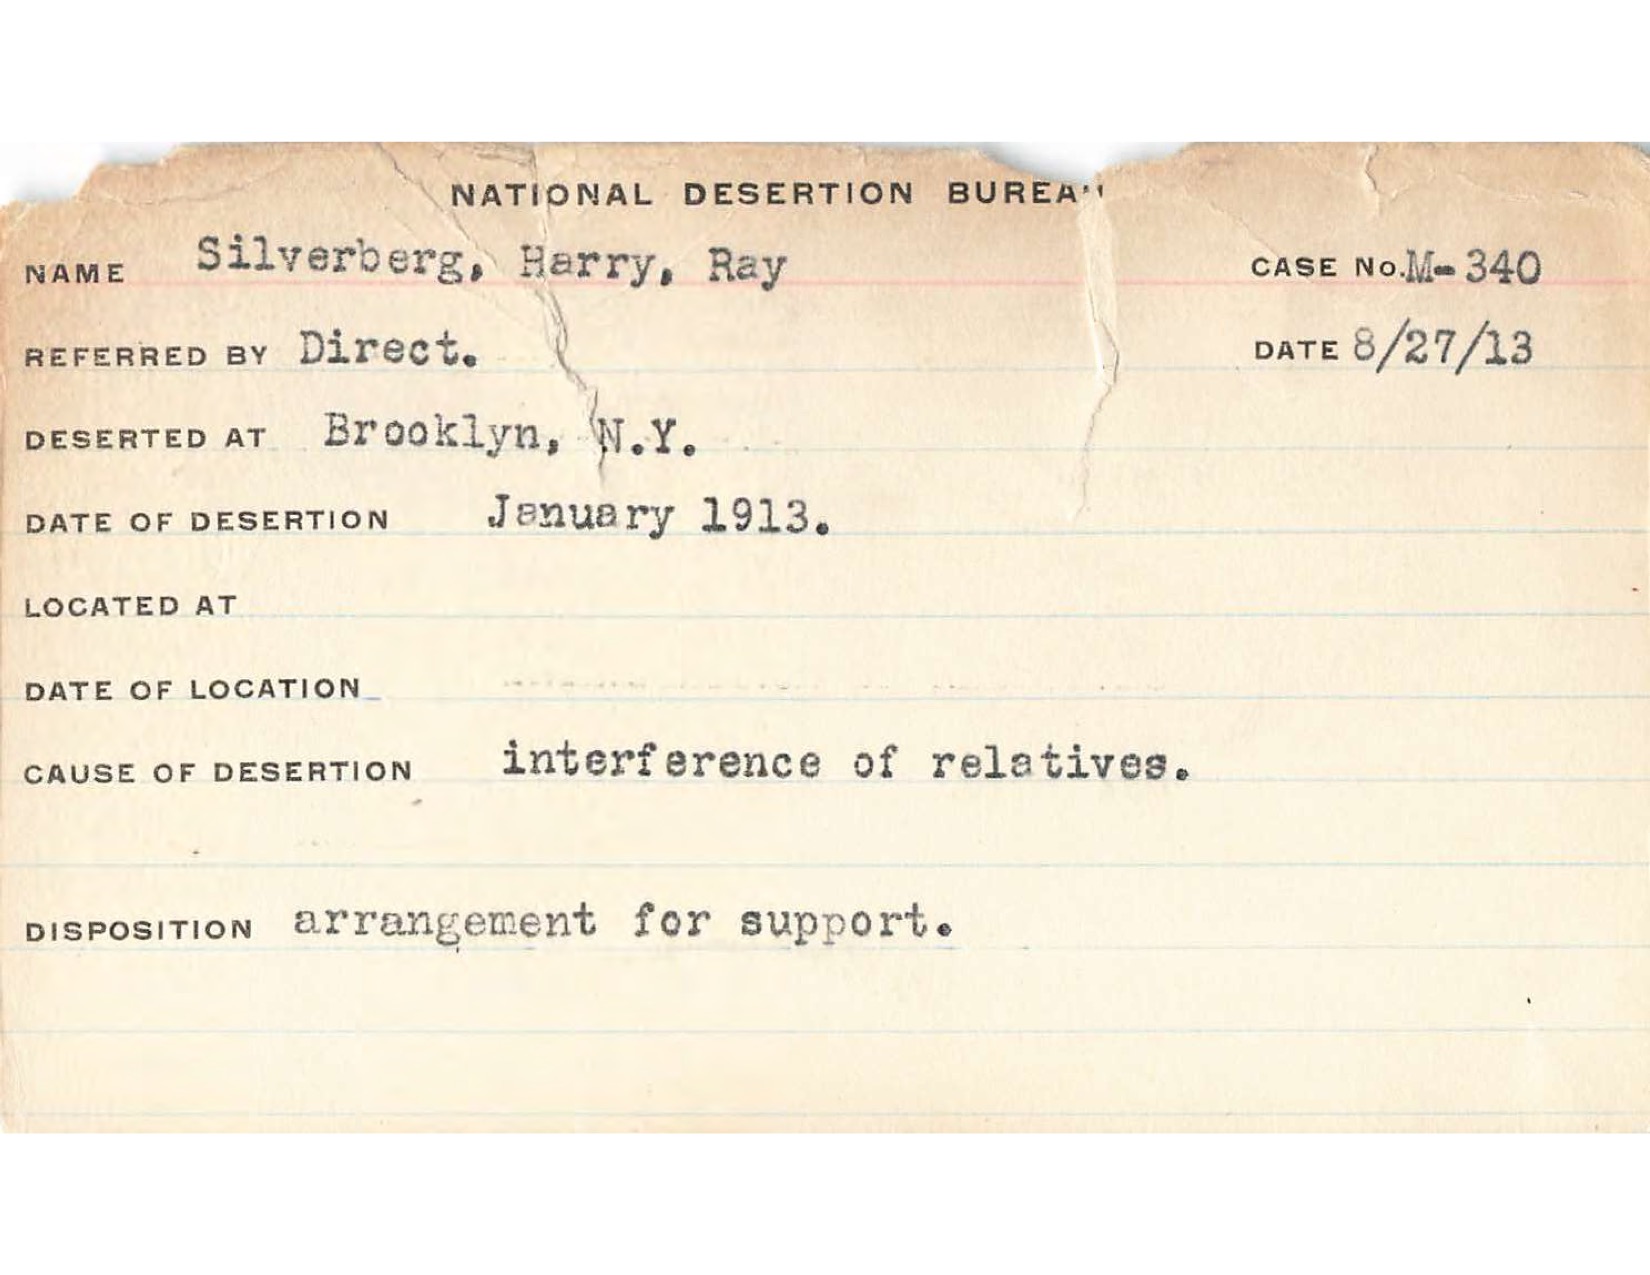 NATIONAL DESERTION BUREAU
NAME Silverberg, Harry, Ray CASE No. M-340
REFERRED BY Direct. DATE 8/27/13
DESERTED AT Brooklyn, N.Y.
DATE OF DESERTION January 1913.
LOCATED AT
DATE OF LOCATION
CAUSE OF DESERTION interference of relatives.
DISPOSITION arrangement for support.